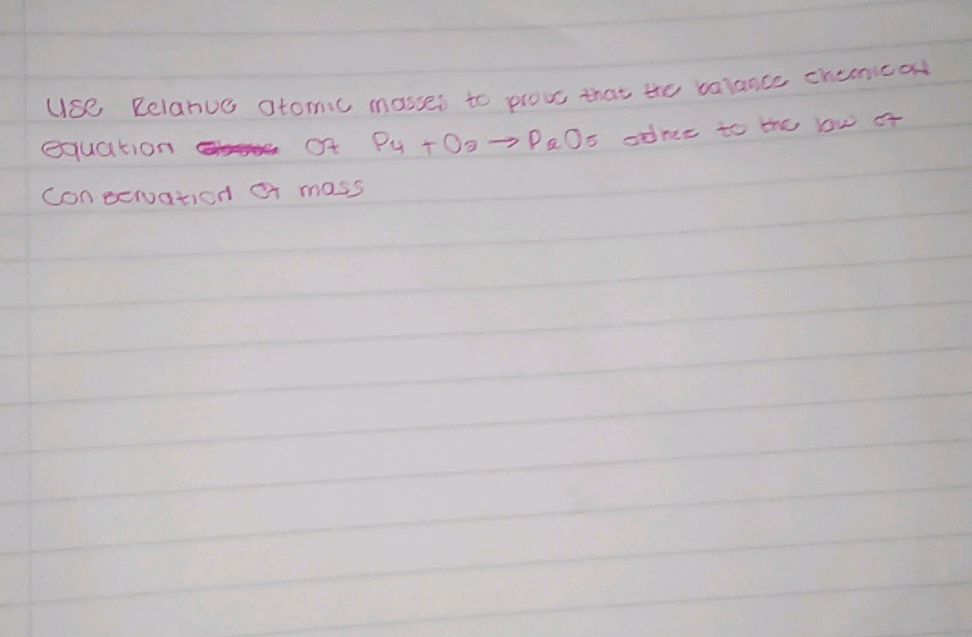 Use Relative atomic masses to prove that the balance chemical
equation of P4 + O2 → P2O5 adhere to the law of
conservation of mass